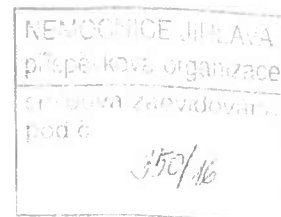 NEMOCNICE JIHLAVA
příspěvková organizace
smlouva zaevidována
pod č.
350/16